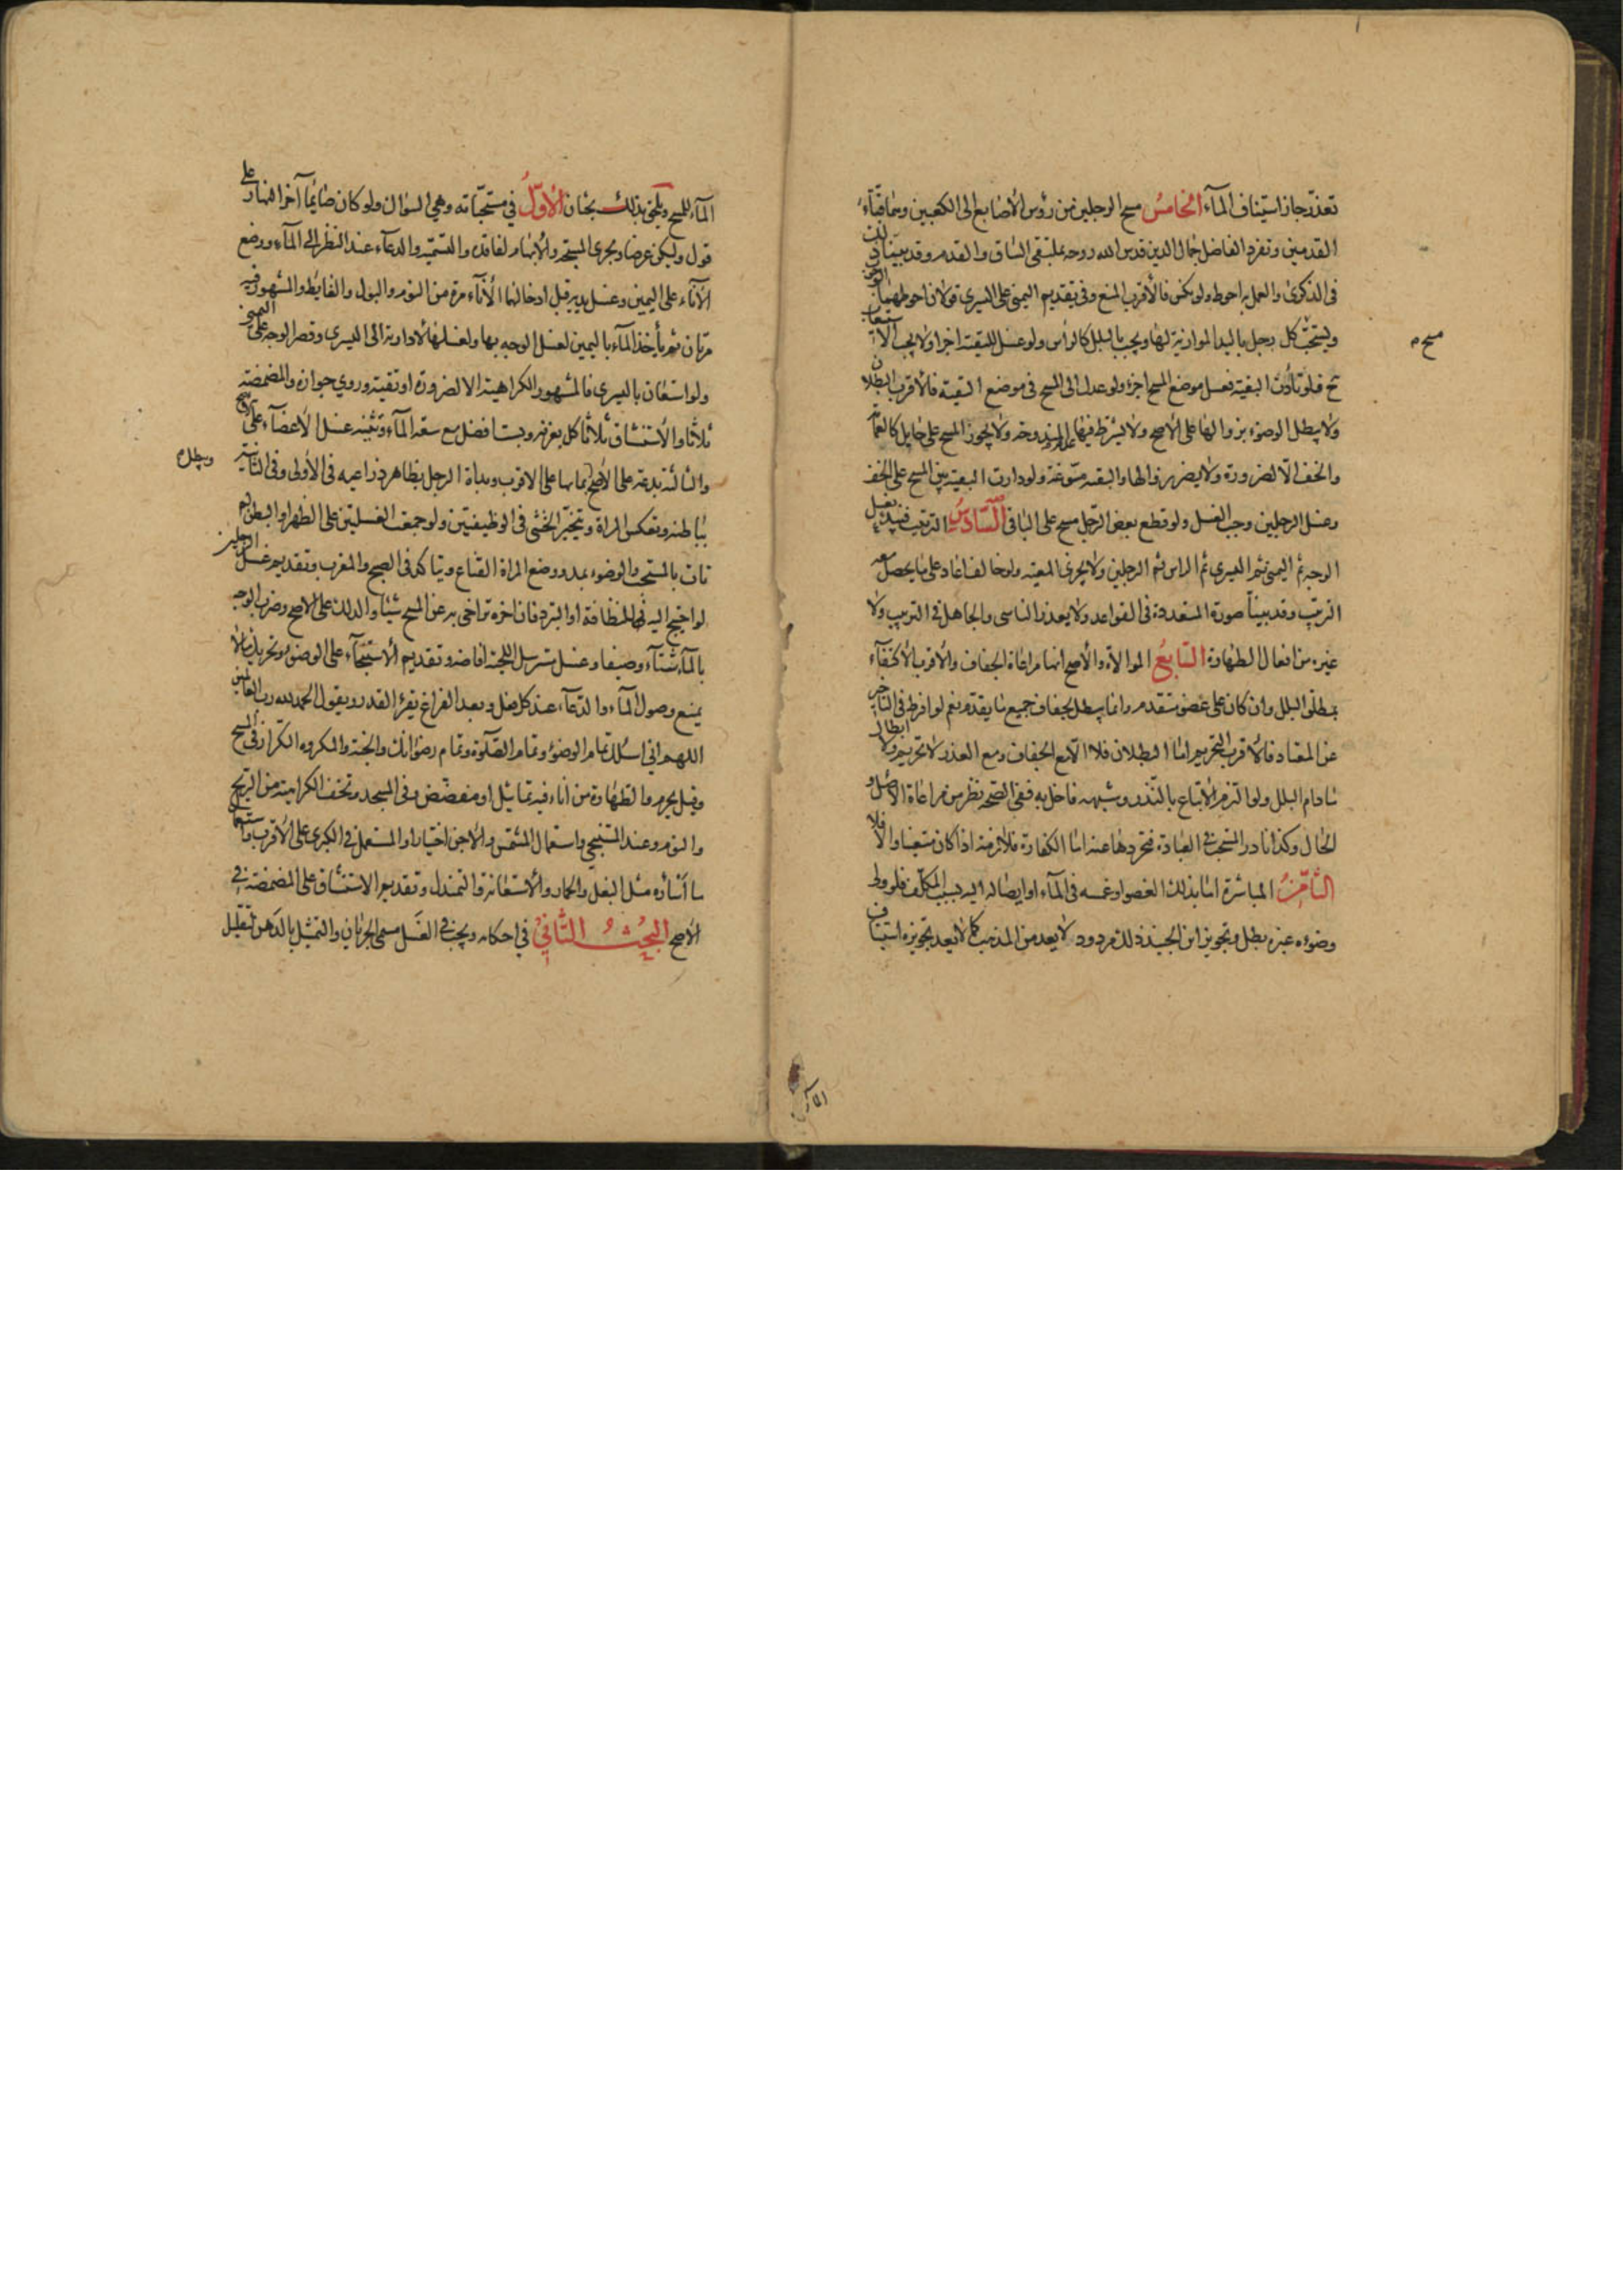 تعذر جاز استيناف المآء الخامس مسح الرجلين من رؤس الأصابع الى الكعبين وهما قبتا
القدمين وتفرد الفاضل جمال الدين قدس الله روحه بملتقى الساق والقدم وقد بينا ذلك
فى الذكرى والعمل به احوط ولو نكس فالأقرب المنع وفى تقديم اليمنى على اليسرى قولان احوطهما الوجوب
ويستحب كل رجل باليد الموازية لها ويجب بالبلل كالرأس ولو غسل للتقية اجزا ولا يجب الاستيعاب
مسح
فلو تأدت التقية بغسل موضع المسح اجزء ولو عدل الى المسح فى موضع التقية فالأقرب البطلان
ولا يبطل الوضوء بزوالها على الأصح ولا يشترط فيها عدم المندوحة ولا يجوز المسح على حايل كالعمامة
والخف الا لضرورة ولا يضر زوالها والتقية مسوغة ولو دارت التقية بين المسح على الخف
وغسل الرجلين وجب الغسل ولو قطع بعض الرجل مسح على الباقى السادس الترتيب فيبدء بغسل
الوجه ثم اليمنى ثم اليسرى ثم الراس ثم الرجلين ولا يجزى المعية ولو خالف اعاد على ما يحصل معه
الترتيب وقد بينا صورة المتعددة فى القواعد ولا يعذر الناسى والجاهل فى الترتيب ولا
غيره من افعال الطهارة السابع الموالاة والأصح انها مراعاة الجفاف والأقرب الاكتفاء
بمطلق البلل وان كان على عضو متقدم وانما يبطل بجفاف جميع ما تقدم نعم لو افرط فى التأخير
عن المعتاد فالأقرب التحريم اما البطلان فلا الا مع الجفاف ومع العذر لا تحريم ولا ابطال
مادام البلل ولو التزم الاتباع بالنذر وشبهه فاخل به ففى الصحة نظر من مراعاة الاصل و
الحال وكذا نادر المستحب فى العبادة بتجردها عنه اما الكفارة فلازمة اذا كان متعينا والا فلا
الثامن المباشرة اما بذلك العضو او غمسه فى المآء او ايصاله اليه بسبب المكلف فلو ولى
وضوءه غيره بطل وتجويز ابن الجنيد ذلك مردود لا يعد من المذهب كما لا يعد تجويزه استيناف
المآء للمسح ويلحق بذلك بحثان الأول في مستحباته وهي السواك ولو كان صايما آخر النهار على
قول وليكن عرضا ويجرى المسبحة والابهام لفاقده والتسمية والدعآء عند النظر الى المآء ووضع
الأنآء على اليمين وغسل يديه قبل ادخالهما الأنآء مرة من النوم والبول والغايط والمشهور فيه
مرتان ثم يأخذ المآء باليمين لغسل الوجه بها ولغسلها لادارته الى اليسرى وقصر الوجه على اليمنى
ولو استعان باليسرى فالمشهور الكراهية الا لضرورة او تقية وروي جوازه والمضمضة
ثلاثا والأستنشاق ثلاثا كل بغرفة وبست افضل مع سعة المآء وتثنية غسل الأعضآء على الأصح
والثالثة بدعة على الأصح بمائها على الاقرب وبدأة الرجل بظاهر ذراعيه فى الأولى وفى الثانية
بباطنه وتعكس المراة وتتخير الخنثى فى الوظيفتين ولو جمعت الغسلتين على الظهر او البطن لم
تأت بالمستحب والوضوء بمد ووضع المراة القناع ويتاكد فى الصبح والمغرب وتقديم غسل الرجلين
لو احتيج اليه للنظافة او التبرد فان اخره تراخى به عن المسح شيئا والدلك على الاصح وضرب الوجه
بالمآء شتآء وصيفا وغسل مسترسل اللحية افاضة وتقديم الأستنجآء على الوضوء وتحريك مالا
يمنع وصول المآء والدعآء عند كل فعل وبعد الفراغ يقرء القدر ويقول الحمد لله رب العالمين
اللهم اني اسئلك تمام الوضوء وتمام الصلوة وتمام رضوانك والجنة والمكروه التكرار فى المسح
وقيل يحرم والطهارة من اناء فيه تماثيل او مفضض وفى المسجد وتخف الكراهية من الريح
والنوم وعند المستنجي واستعمال المشمس والآجن اختيارا والمستعمل فى الكبرى على الأقرب
ما اسأره مثل البغل والحمار والأستعانة والتمندل وتقديم الاستنشاق على المضمضة في
الأصح البحث الثاني في احكامه ويجب في الغسل مسمى الجريان والتمثيل بالدهن لتقليل